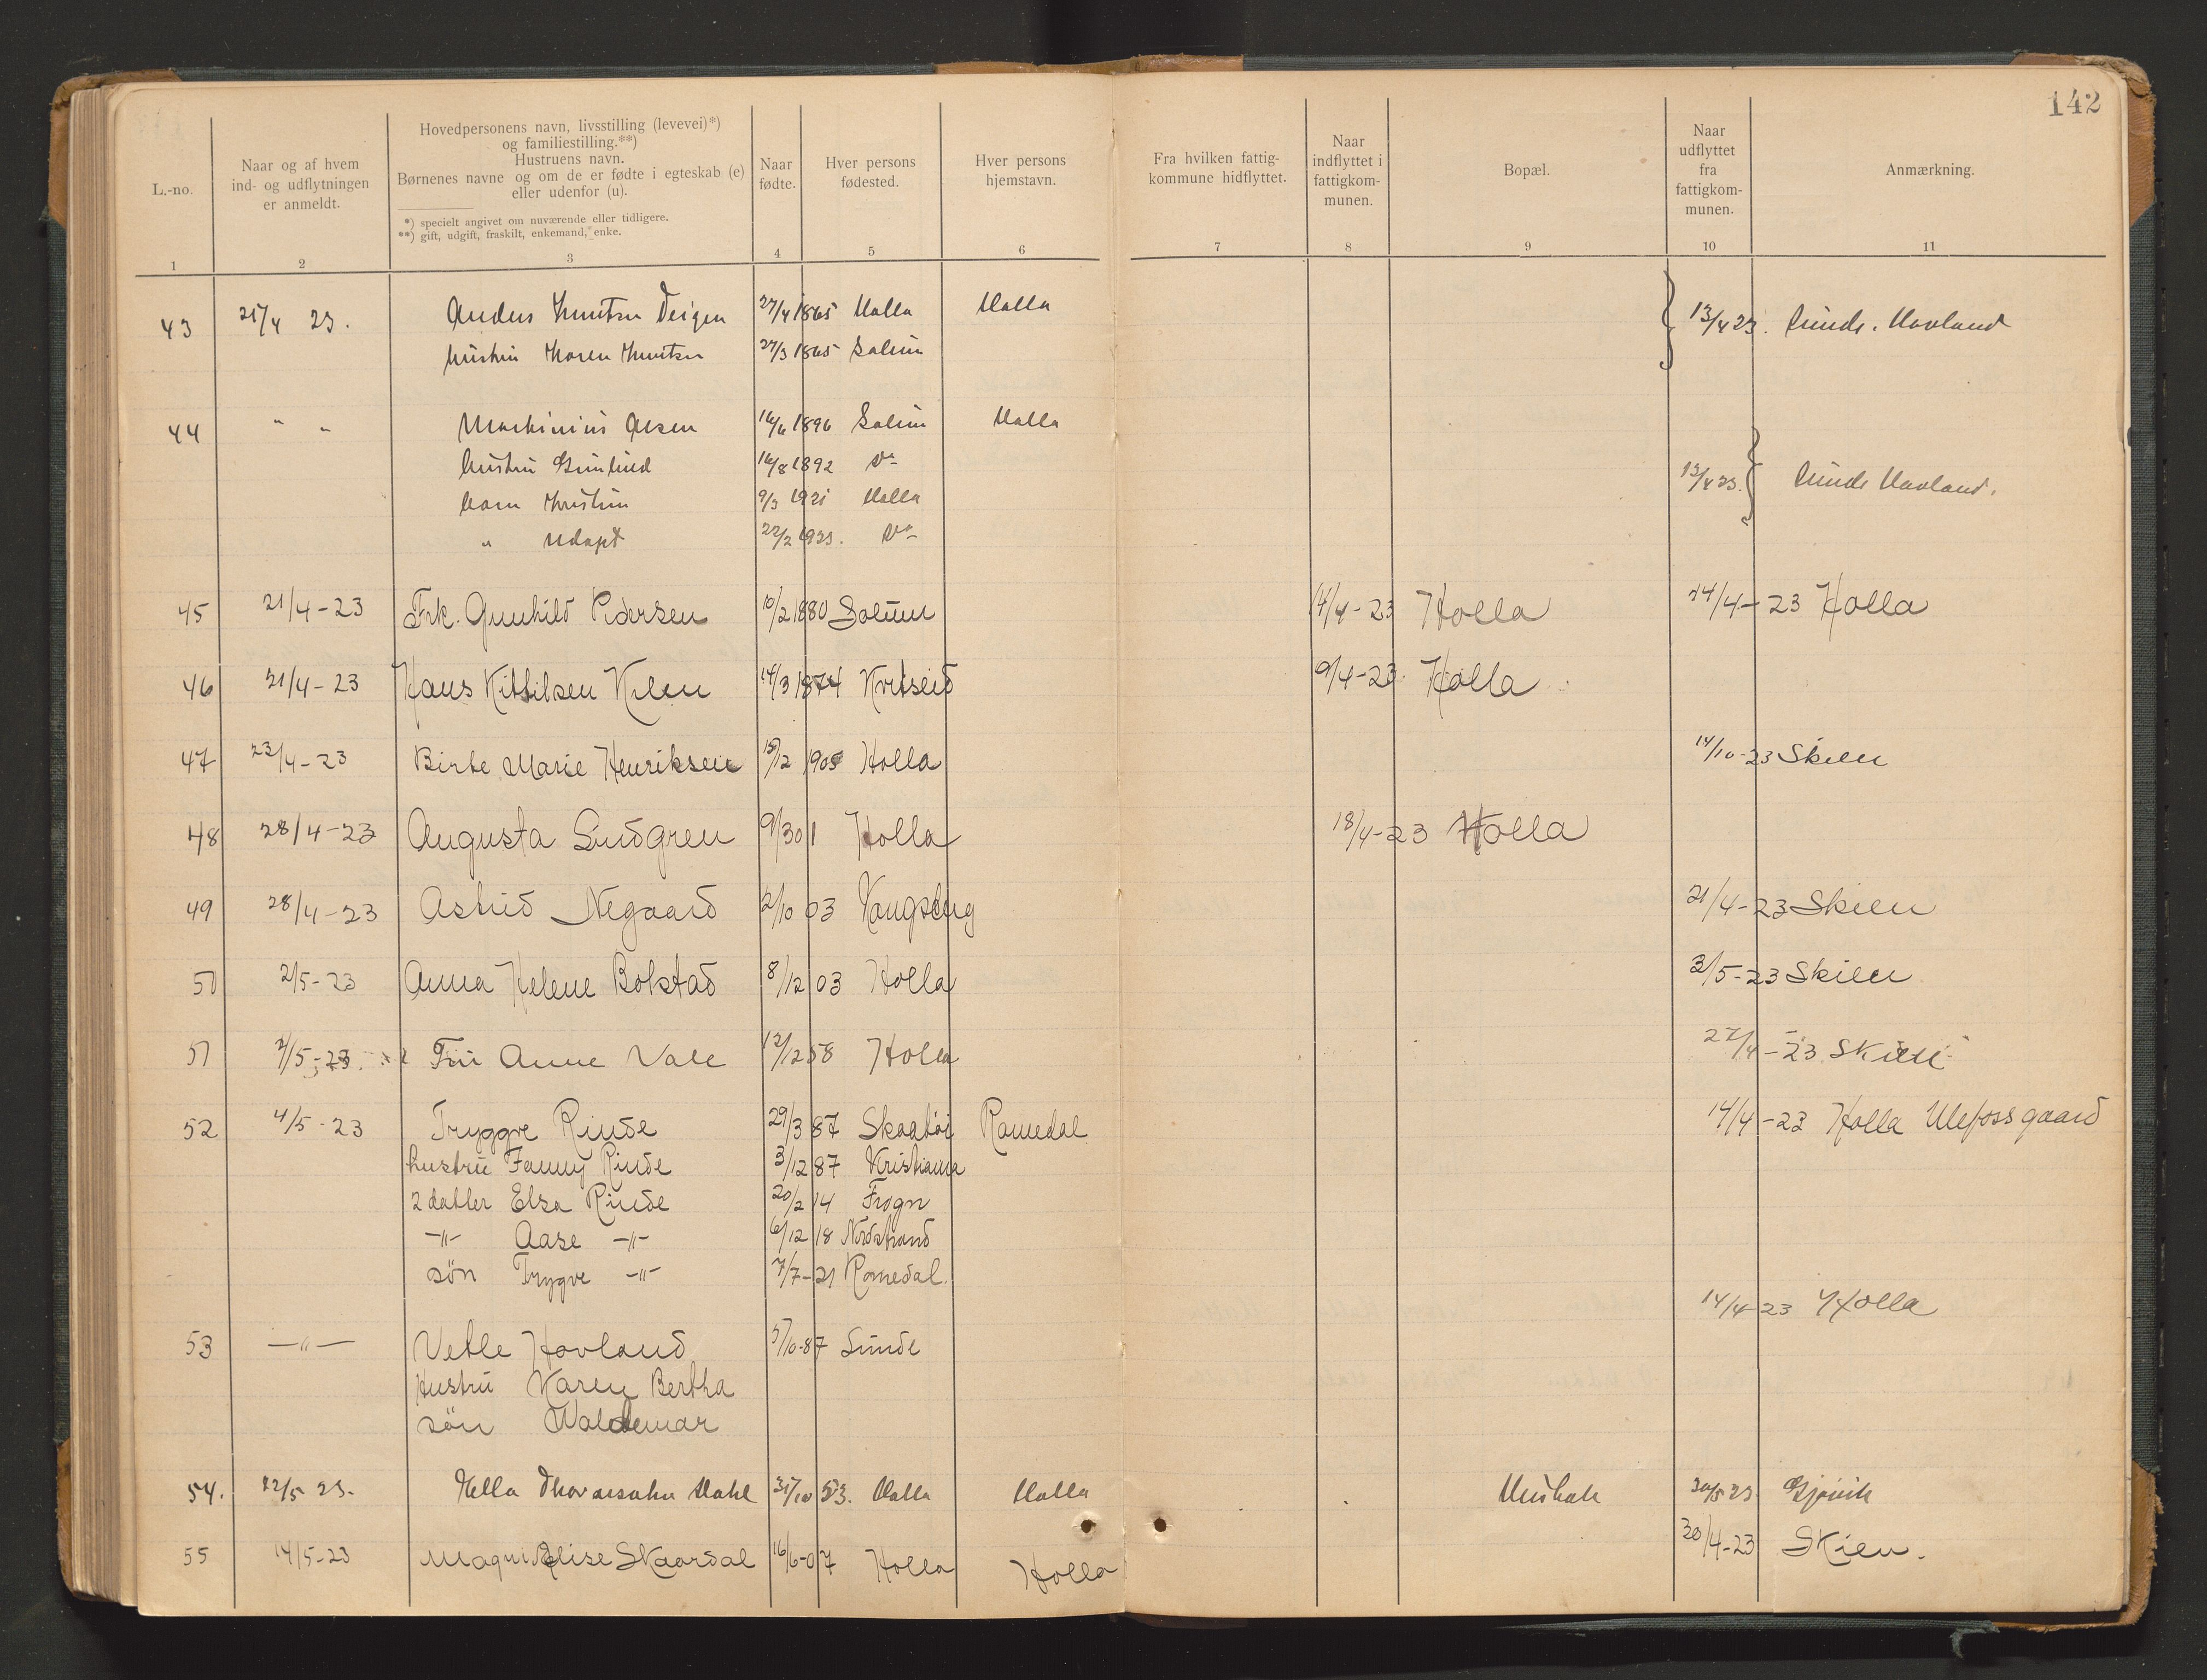 142
L.-no.
Naar og af hvem
ind- og udflytningen
er anmeldt.
Hovedpersonens navn, livsstilling (levevei)*)
og familiestilling.**)
Hustruens navn.
Børnenes navne og om de er fødte i egteskab (e)
eller udenfor (u).
*) specielt angivet om nuværende eller tidligere.
**) gift, udgift, fraskilt, enkemand, enke.
Naar
fødte.
Hver persons
fødested.
Hver persons
hjemstavn.
Fra hvilken fattig-
kommune hidflyttet.
Naar
indflyttet i
fattigkom-
munen.
Bopæl.
Naar
udflyttet
fra
fattigkom-
munen.
Anmærkning.
1 2 3 4 5 6 7 8 9 10 11
43 21/4 23. Anders Knutsen 27/4 1865 Holla Holla 13/4 23. Lunde. Hovland
hustru Maren Knutsen 27/3 1865 Solum
44 " " Olsen 16/6 1896 Solum Holla
hustru Gunhild 16/8 1892 Do 13/4 23. Lunde Hovland.
barn Kristine 9/3 1921 Holla
" Udøpt 22/2 1923. Do
45 21/4-23 Frk. Gunhild Pedersen 10/2 1880 Solum 14/4-23 Holla 14/4-23 Holla
46 21/4-23 Hans Kittilsen Kilen 14/3 1874 Kviteseid 9/4-23. Holla
47 23/4-23 Birte Marie Henriksen 15/12 1905 Holla 14/10-23 Skien
48 28/4-23 Augusta Lindgren 9/3 01 Holla 18/4-23 Holla
49 28/4-23 Astrid Negaard 2/10 03 21/4-23 Skien
50 2/5-23 Anna Helene Bolstad 8/12 03 Holla 3/5-23 Skien
51 2/5-23. Fru Anne Vale 12/12 58 Holla 27/4-23 Skien
52 4/5-23 Tryggve Rinde 29/3 87 Skaatøi Romedal 14/4-23 Holla Ulefoss gaard
hustru Fanny Rinde 3/12 87 Kristiania
2 datter Elsa Rinde 20/2 14 Frogn
-"- Aase -"- 6/12 18 Nordstrand
søn Trygve -"- 7/7-21 Romedal.
14/4-23 Holla
53 -"- Vetle Hovland 5/10-87 Lunde
Hustru Karen Bertha
søn Waldemar
54. 22/5 23. Hella Dahl 31/10 53. Holla Holla 30/5 23. Gjøvik
55 14/5-23 Magnhild Elise Skaardal 16/6-07 Holla Holla 30/4-23 Skien.